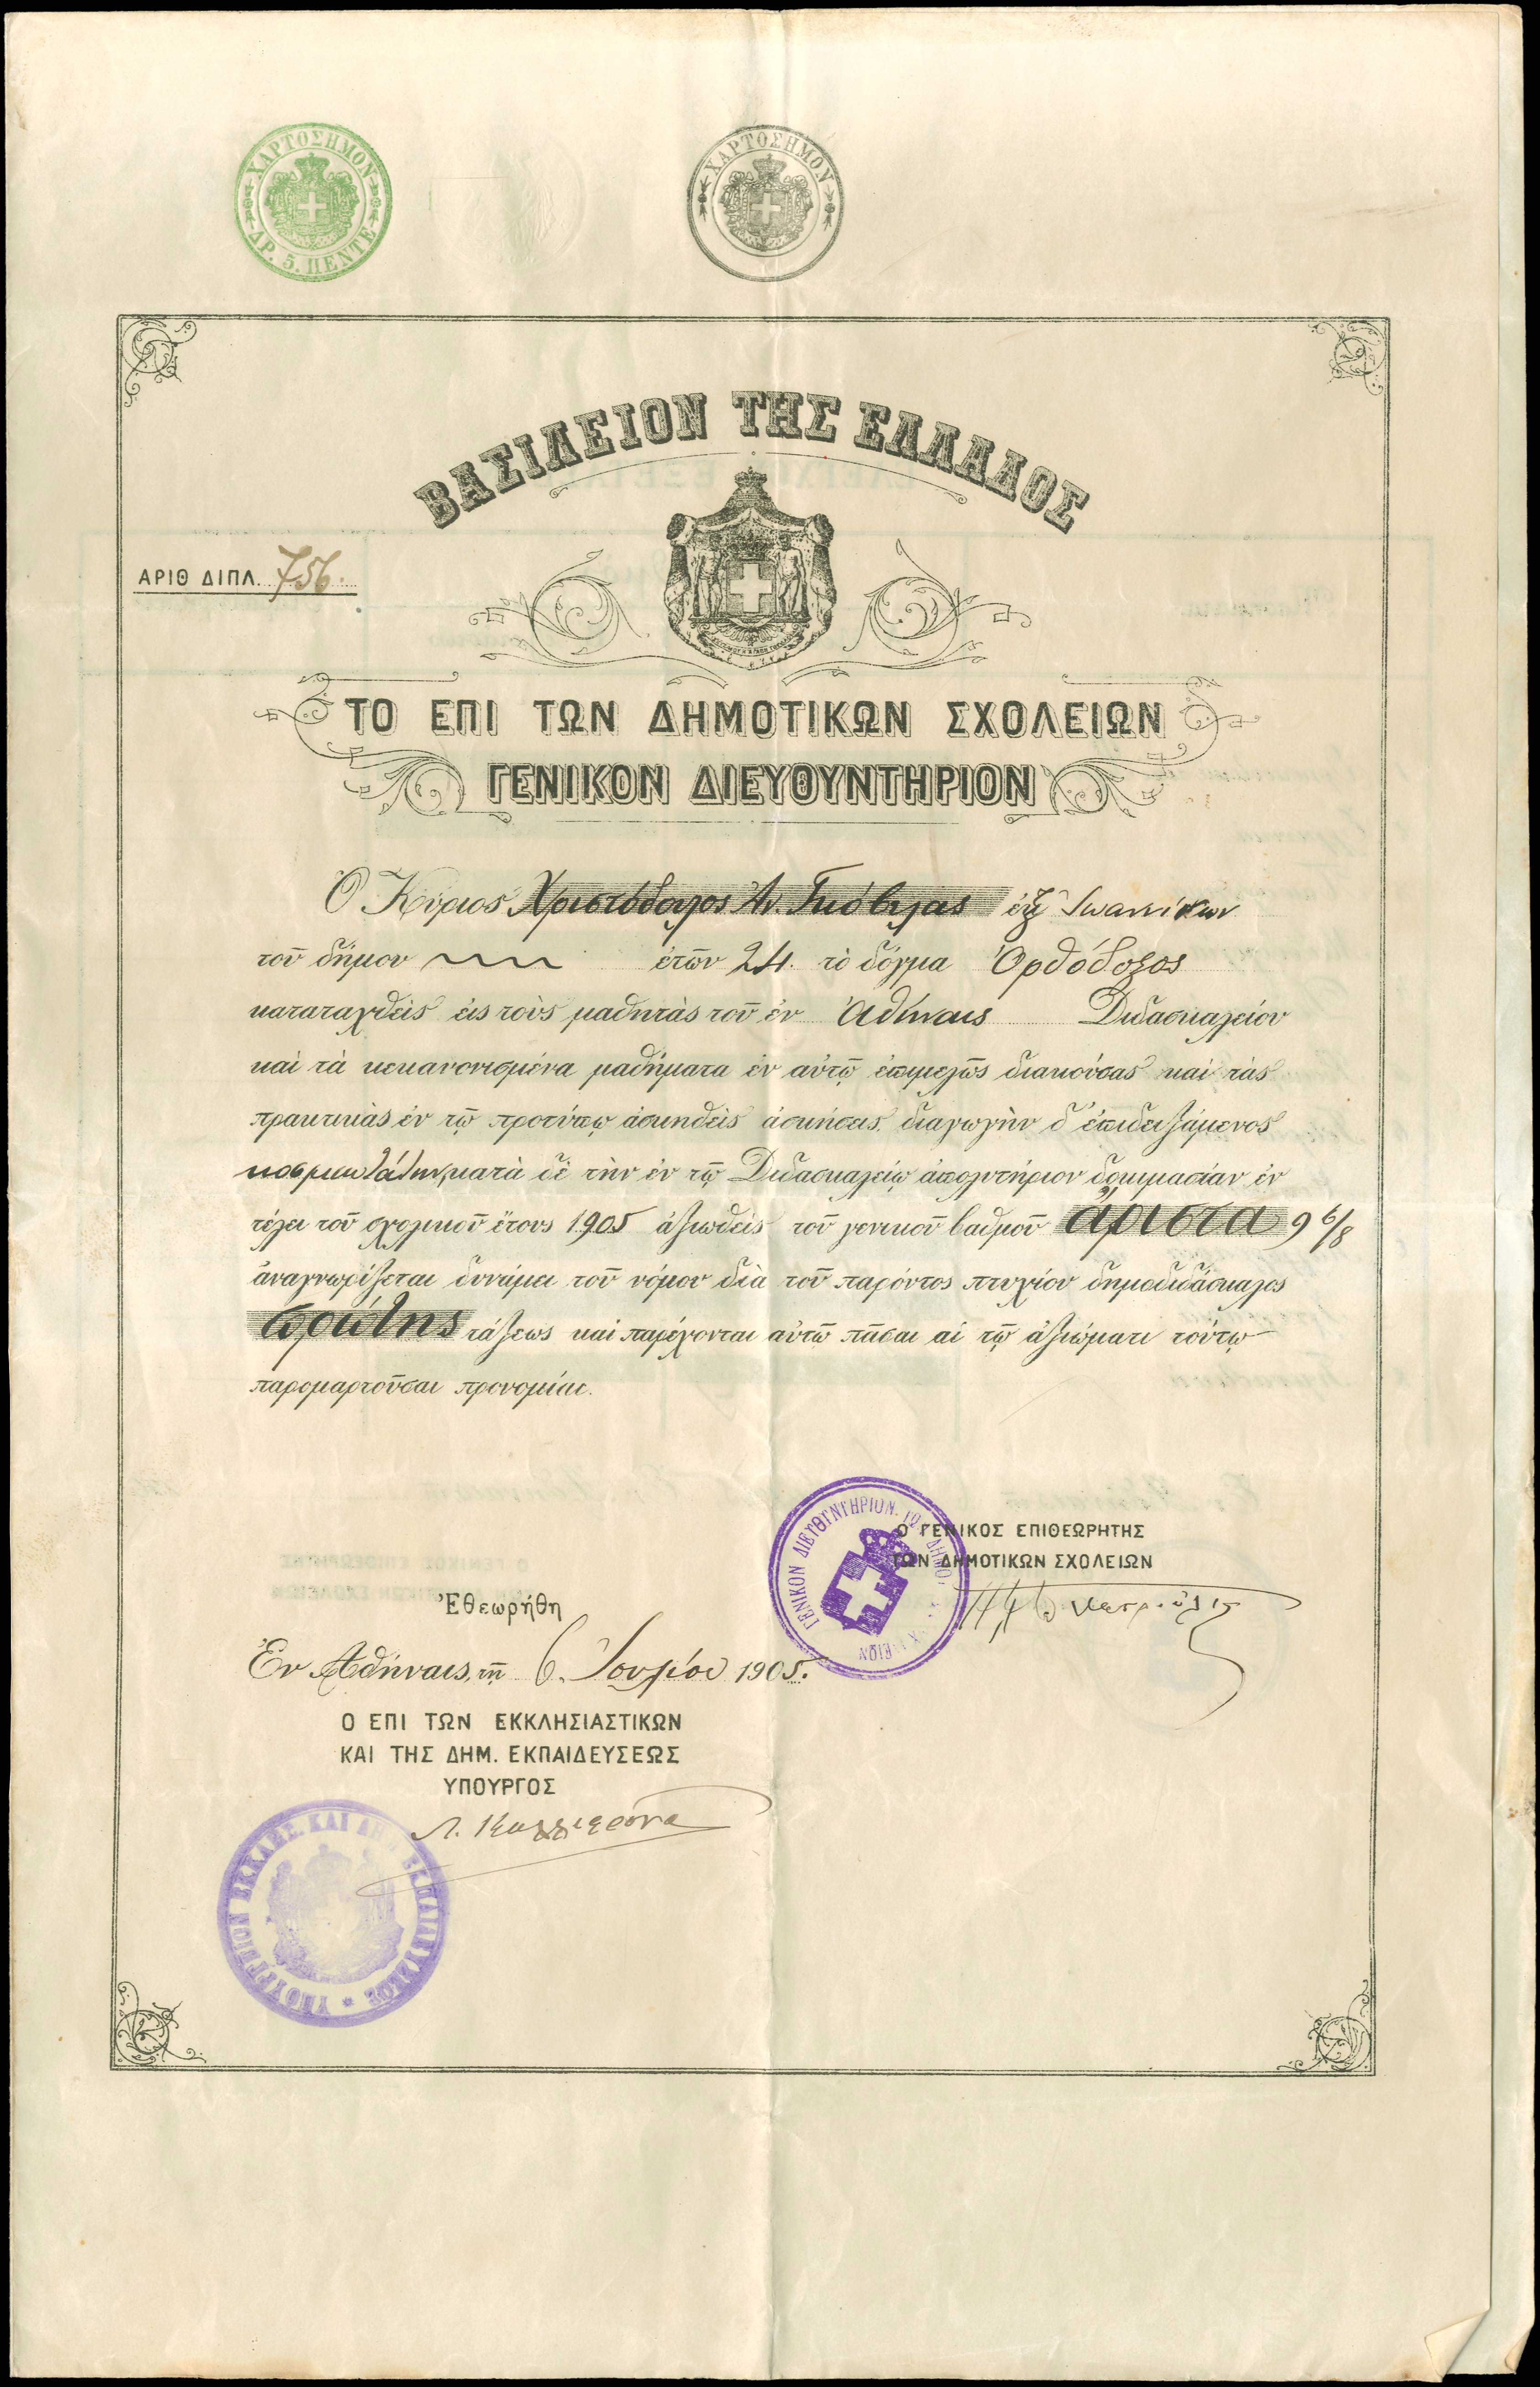 ΧΑΡΤΟΣΗΜΟΝ
ΔΡ. 5. ΠΕΝΤΕ
ΧΑΡΤΟΣΗΜΟΝ
ΒΑΣΙΛΕΙΟΝ ΤΗΣ ΕΛΛΑΔΟΣ
ΑΡΙΘ ΔΙΠΛ. 756.
ΤΟ ΕΠΙ ΤΩΝ ΔΗΜΟΤΙΚΩΝ ΣΧΟΛΕΙΩΝ
ΓΕΝΙΚΟΝ ΔΙΕΥΘΥΝΤΗΡΙΟΝ
Ὁ Κύριος Χριστόδουλος Ἀν. Γκόβιλας ἐξ Ἰωαννίνων
τοῦ δήμου ἐτῶν 24. τὸ δόγμα Ὀρθόδοξος
καταταχθεὶς εἰς τοὺς μαθητὰς τοῦ ἐν Ἀθήναις Διδασκαλείου
καὶ τὰ κεκανονισμένα μαθήματα ἐν αὐτῷ ἐπιμελῶς διακούσας καὶ τὰς
πρακτικὰς ἐν τῷ προτύπῳ ἀσκηθεὶς ἀσκήσεις, διαγωγὴν δ' ἐπιδειξάμενος
κοσμιωτάτην, κατὰ δὲ τὴν ἐν τῷ Διδασκαλείῳ ἀπολυτήριον δοκιμασίαν ἐν
τέλει τοῦ σχολικοῦ ἔτους 1905 ἀξιωθεὶς τοῦ γενικοῦ βαθμοῦ ἄριστα 9 6/8
ἀναγνωρίζεται δυνάμει τοῦ νόμου διὰ τοῦ παρόντος πτυχίου δημοδιδάσκαλος
πρώτης τάξεως καὶ παρέχονται αὐτῷ πᾶσαι αἱ τῷ ἀξιώματι τούτῳ
παρομαρτοῦσαι προνομίαι.
ΓΕΝΙΚΟΝ ΔΙΕΥΘΥΝΤΗΡΙΟΝ
Ο ΓΕΝΙΚΟΣ ΕΠΙΘΕΩΡΗΤΗΣ
ΤΩΝ ΔΗΜΟΤΙΚΩΝ ΣΧΟΛΕΙΩΝ
Ἐθεωρήθη
Ἐν Ἀθήναις, τῇ 6. Ἰουλίου 1905.
Ο ΕΠΙ ΤΩΝ ΕΚΚΛΗΣΙΑΣΤΙΚΩΝ
ΚΑΙ ΤΗΣ ΔΗΜ. ΕΚΠΑΙΔΕΥΣΕΩΣ
ΥΠΟΥΡΓΟΣ
ΥΠΟΥΡΓΕΙΟΝ ΕΚΚΛΗΣ. ΚΑΙ ΔΗΜ. ΕΚΠΑΙΔΕΥΣΕΩΣ